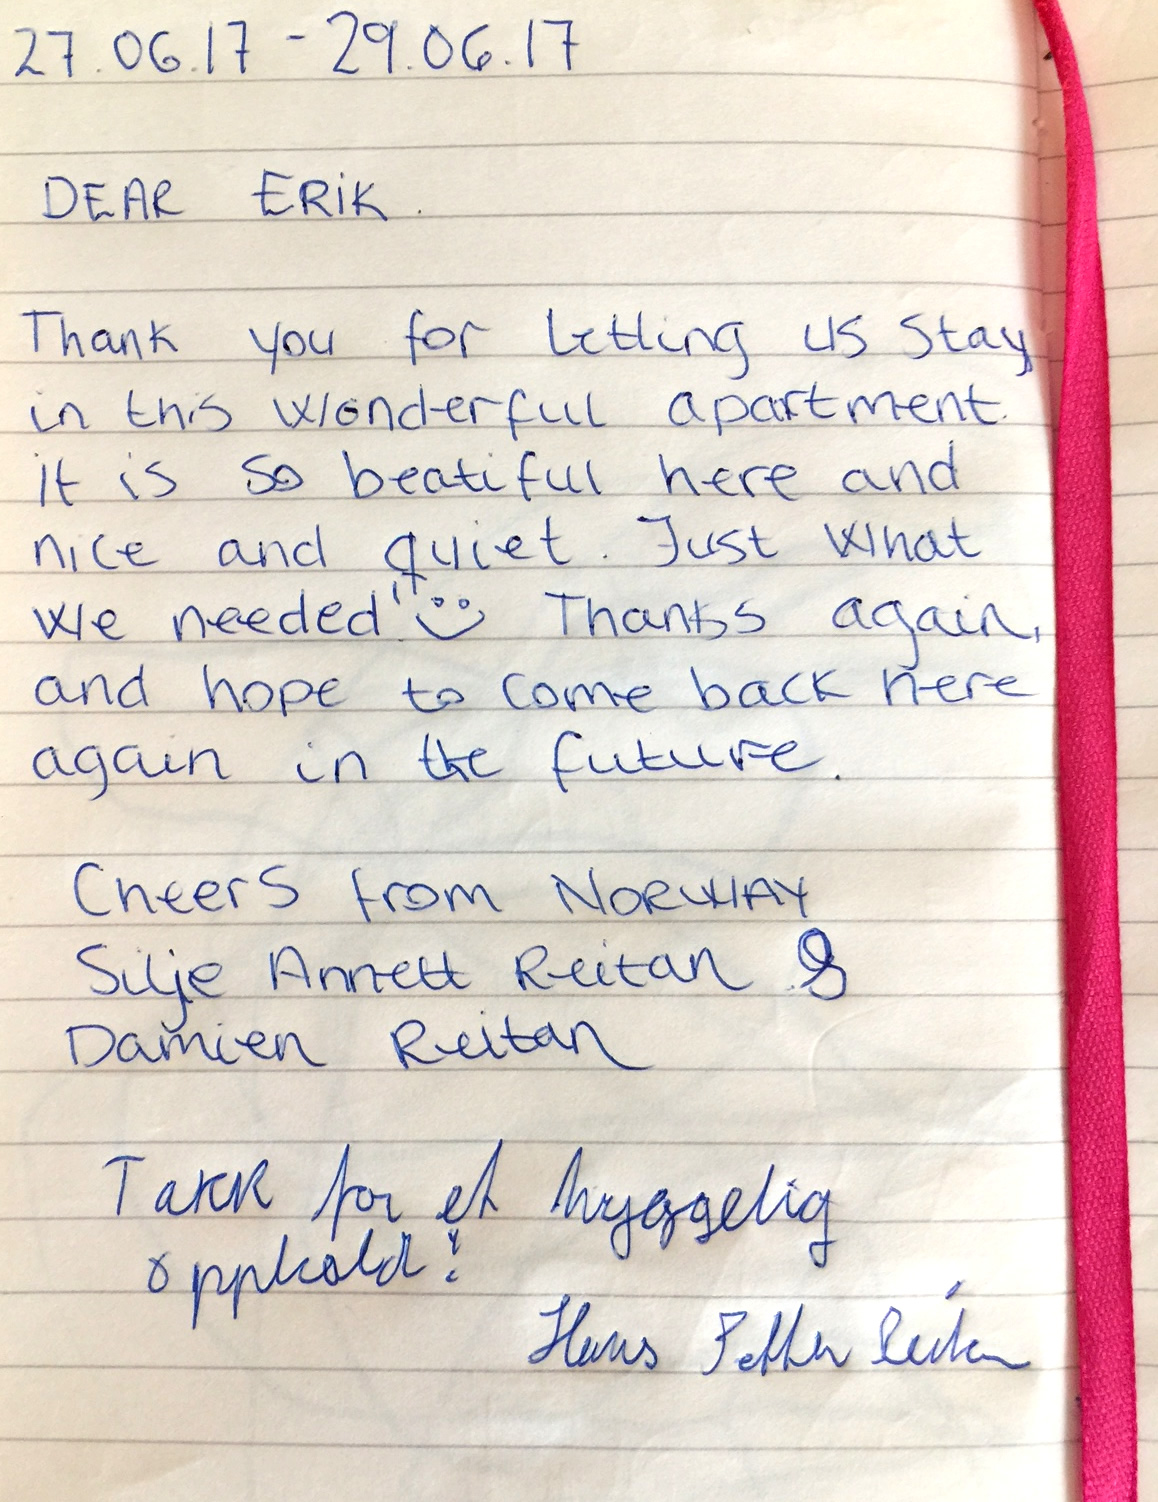 27.06.17 - 29.06.17
DEAR ERiK.
Thank you for letting us stay
in this wonderful apartment.
it is so beatiful here and
nice and quiet. Just what
we needed!! Thanks again,
and hope to come back here
again in the future.
Cheers from NORWAY
Silje Annett Reitan &
Damien Reitan
Takk for et hyggelig
opphold!
Hans Petter Reitan